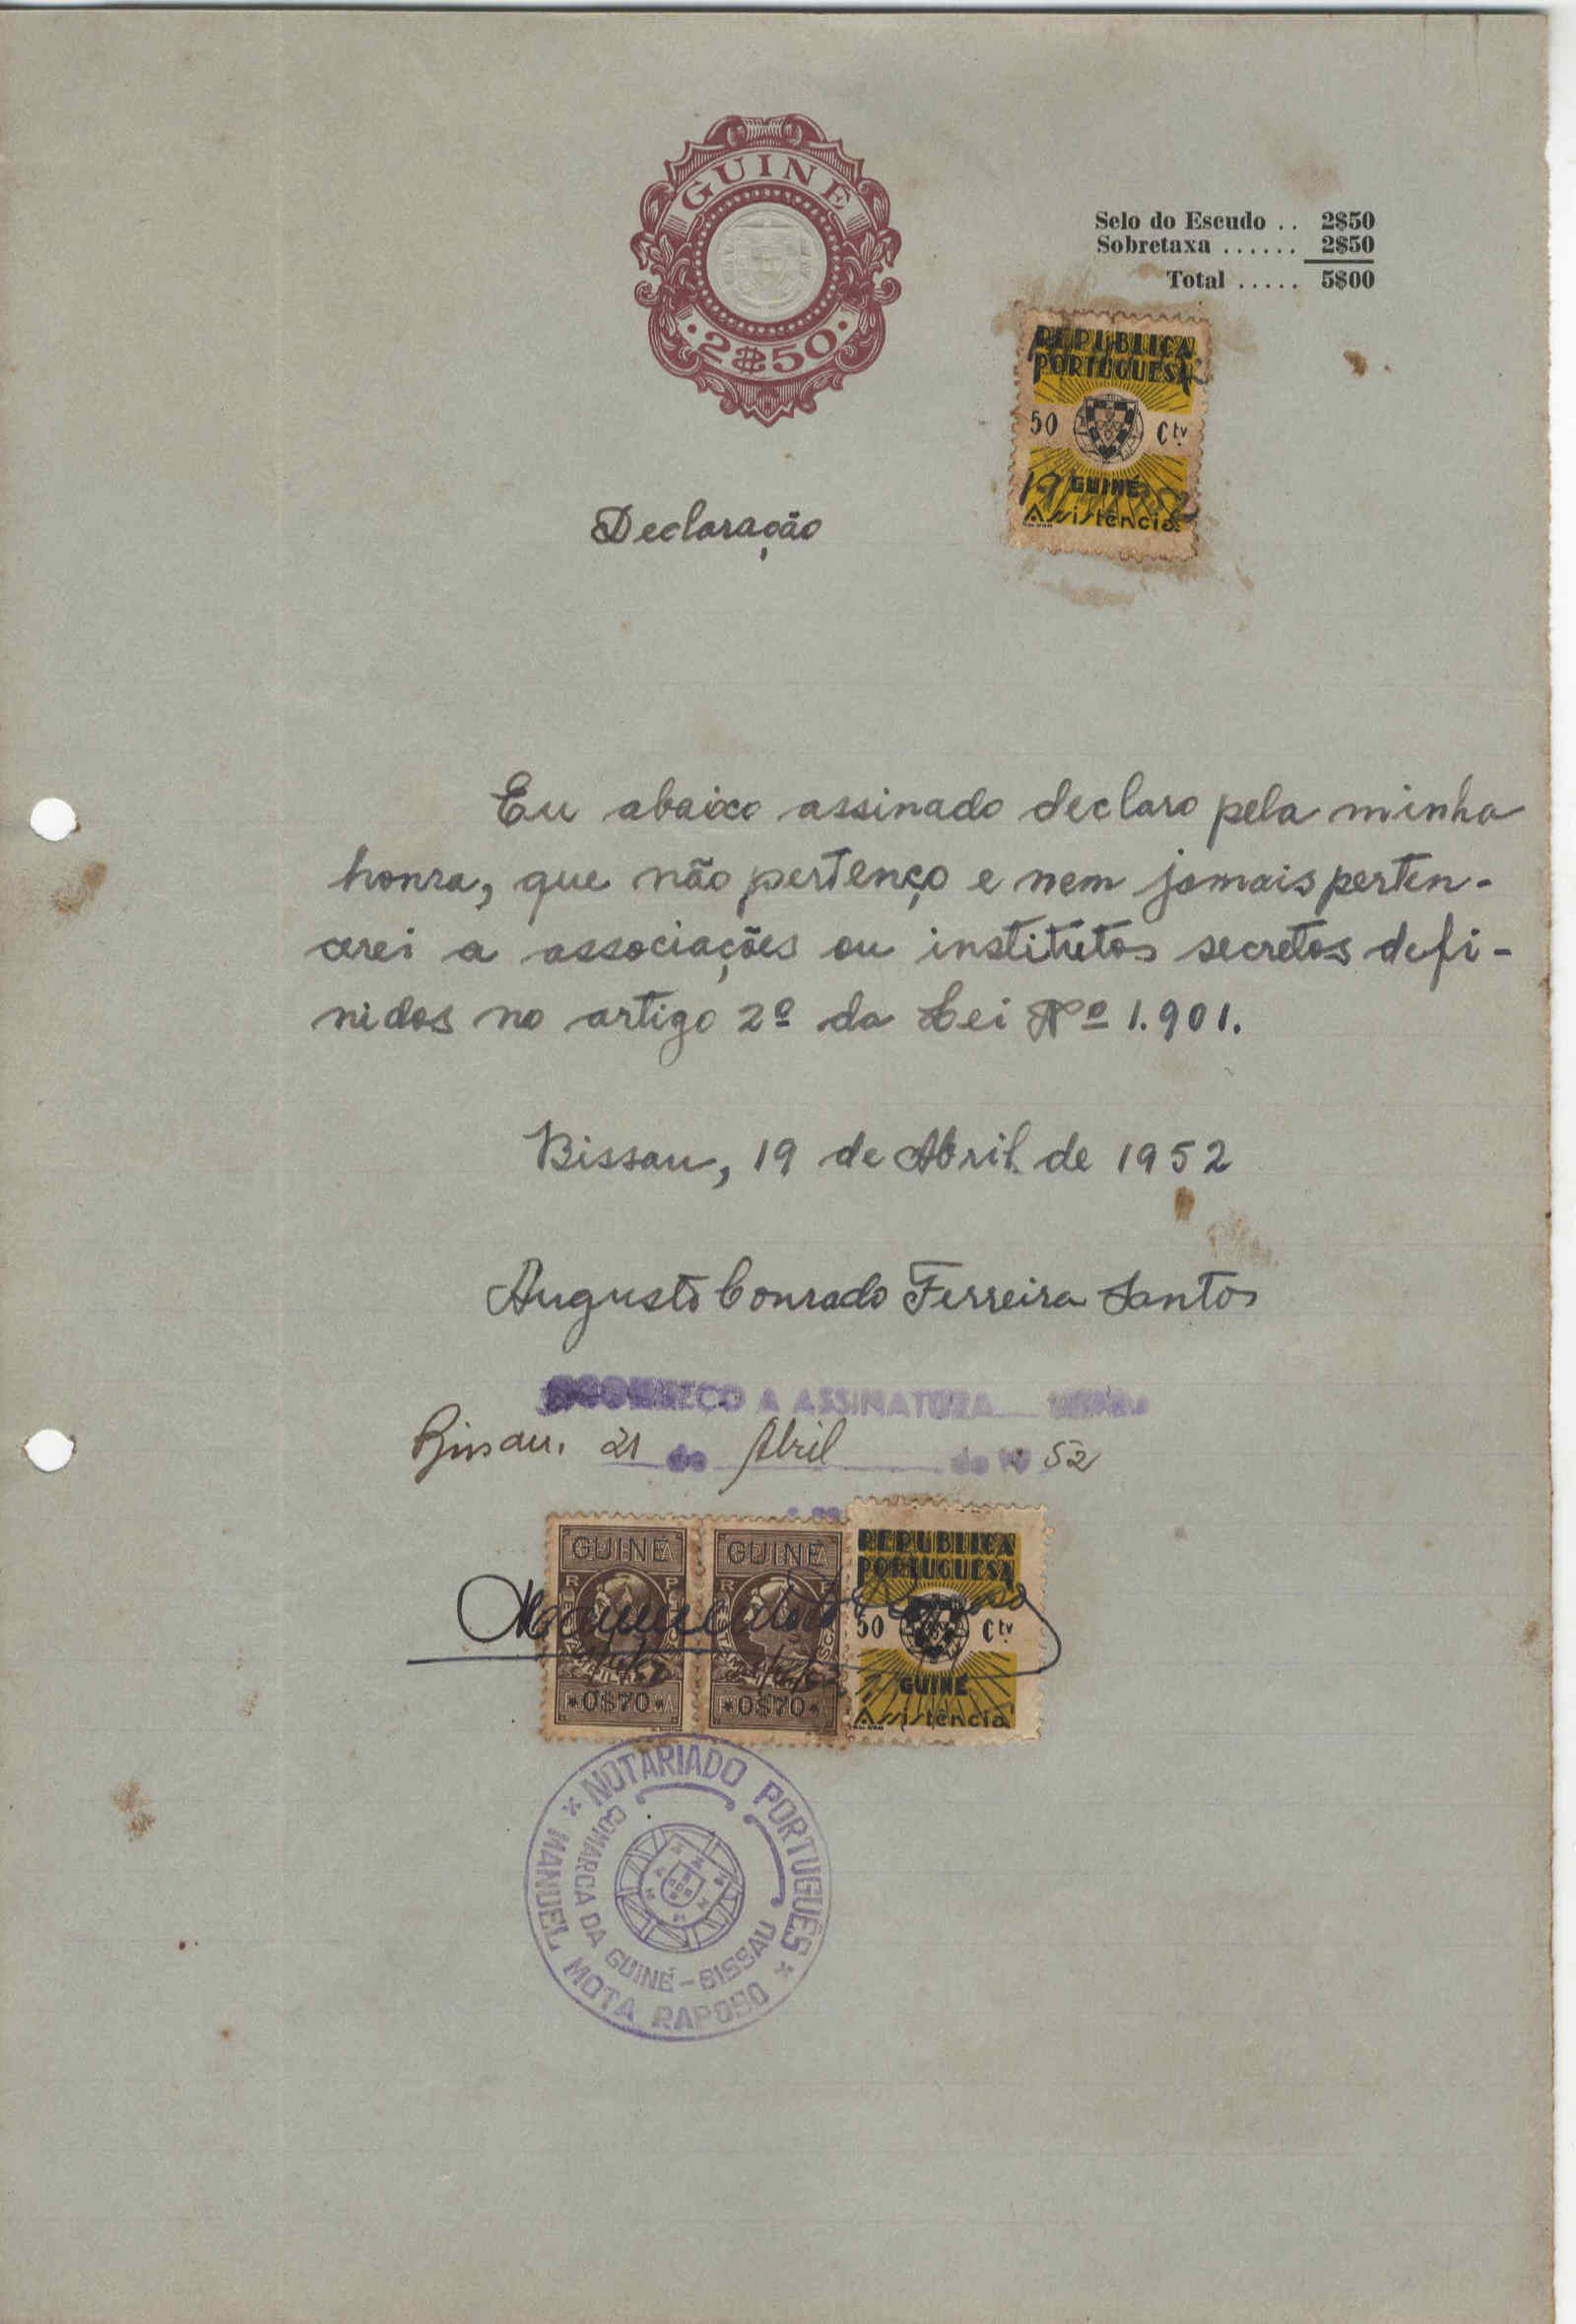 GUINÉ
2$50
Selo do Escudo .. 2$50
Sobretaxa ...... 2$50
Total ..... 5$00
REPUBLICA
PORTUGUESA
50 Ctv
GUINÉ
Assistência
Declaração
Eu abaixo assinado declaro pela minha
honra, que não pertenço e nem jamais perten-
cerei a associações ou institutos secretos defi-
nidos no artigo 2º da Lei Nº 1.901.
Bissau, 19 de Abril de 1952
Augusto Conrado Ferreira Santos
RECONHEÇO A ASSINATURA
Bissau, 21 de Abril de 19 52
GUINÉ
GUINÉ
REPUBLICA
PORTUGUESA
R P
R P
50 Ctv
GUINÉ
*0$70*
*0$70*
Assistência
NOTARIADO PORTUGUÊS
COMARCA DA GUINÉ-BISSAU
MANUEL MOTA RAPOSO